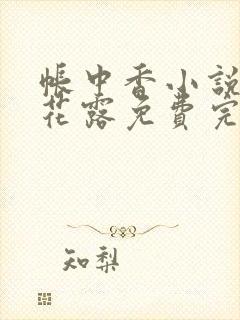 帐中香小說
花露免費完
知梨